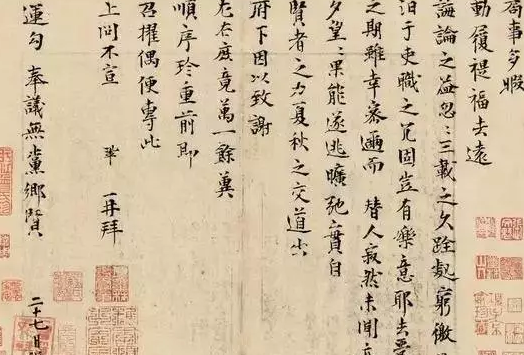 局事多暇
動履禔福去遠
誨論之益忽〻三載之久跧處窮徼
汩于吏職之冗固豈有樂意耶去受
之期雖幸密邇而 替人寂然未聞亦
夕望〻果能遂逃曠弛實自
賢者之力夏秋之交道出
府下因以致謝
左右庶竟萬一餘冀
順序珍重前即
召擢偶便專此
上問不宣 鞏 再拜
運勾 奉議無黨鄉賢 二十七日